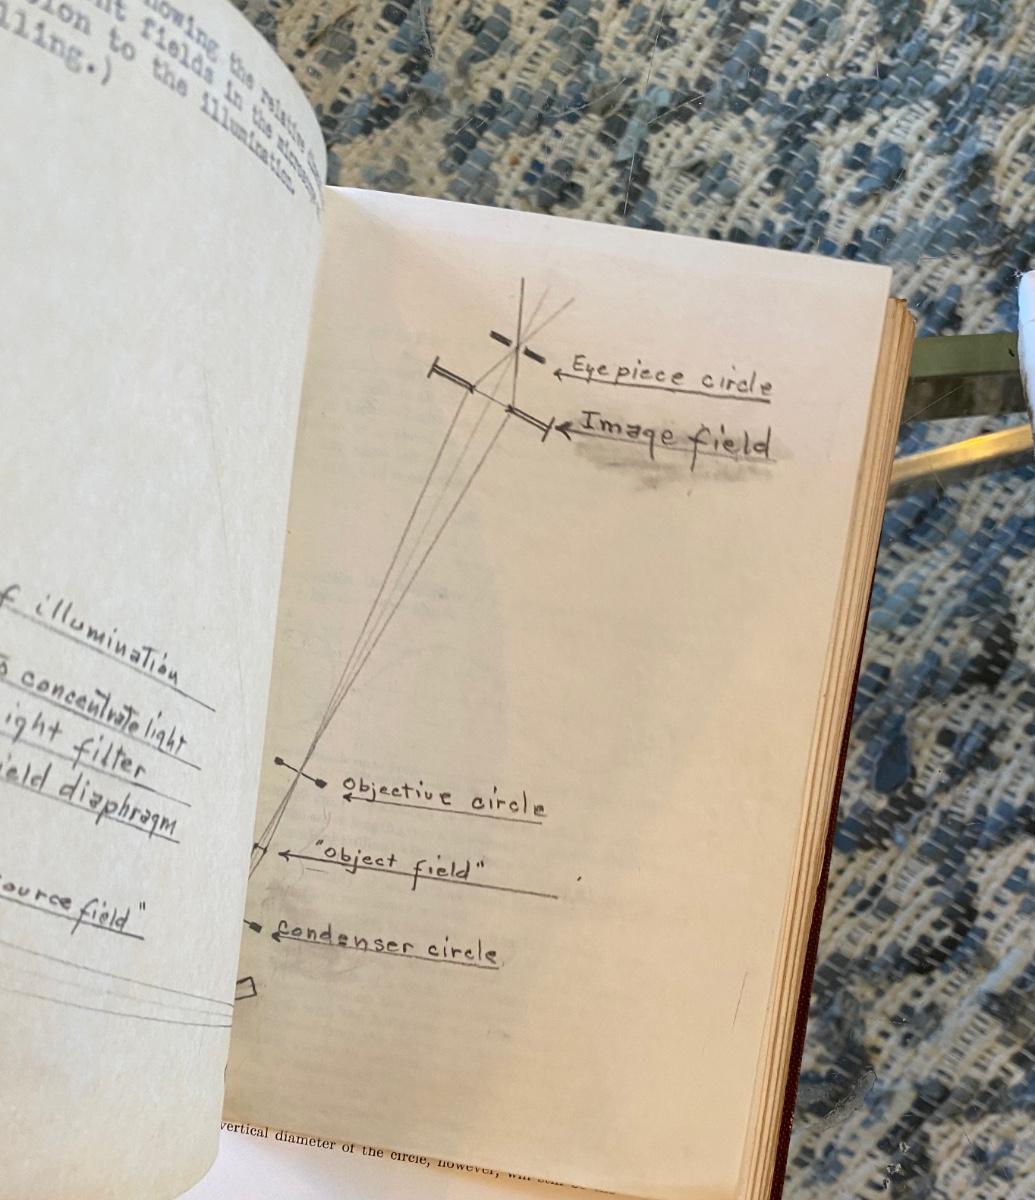 nowing the relative
nt fields in the microscope
ion to the illumination
lling.)
f illumination
concentrate light
ight filter
ield diaphragm
ource field"
Eyepiece circle
Image field
Objective circle
"Object field"
Condenser circle
vertical diameter of the circle, however, will still be